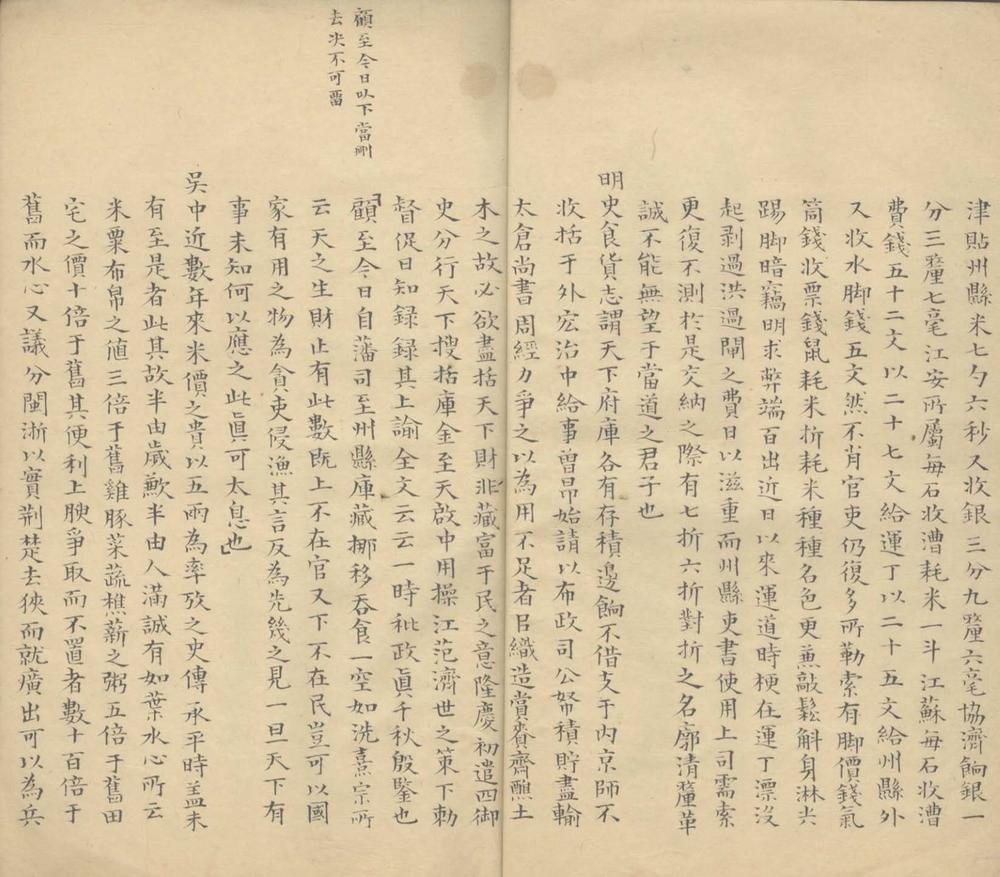 津貼州縣米七勺六秒又收銀三分九釐六毫協濟餉銀一
分三釐七毫江安所屬每石收漕耗米一斗江蘇每石收漕
費錢五十二文以二十七文給運丁以二十五文給州縣外
又收水脚錢五文然不肖官吏仍復多所勒索有脚價錢氣
筒錢收票錢鼠耗米折耗米種種名色更兼敲鬆斛身淋尖
踢脚暗竊明求弊端百出近日以來運道時梗在運丁漂沒
起剥過洪過閘之費日以滋重而州縣吏書使用上司需索
更復不測於是交納之際有七折六折對折之名廓清釐革
誠不能無望于當道之君子也
明史食貨志謂天下府庫各有存積邊餉不借支于内京師不
收括于外宏治中給事曾昻始請以布政司公帑積貯盡輸
太倉尚書周經力爭之以為用不足者㠯織造賞賚齋醮土
木之故必欲盡括天下財非藏富于民之意隆慶初遣四御
史分行天下搜括庫金至天啟中用操江范濟世之策下勅
督促日知録録其上諭全文云云一時秕政眞千秋殷鑒也
顧至今日自藩司至州縣庫藏挪移吞食一空如洗熹宗所
云天之生財止有此數既上不在官又下不在民豈可以國
家有用之物為貪吏侵漁其言反為先幾之見一旦天下有
事未知何以應之此眞可太息也
吳中近數年來米價之貴以五兩為率攷之史傳承平時盖未
有至是者此其故半由歲歉半由人滿誠有如葉水心所云
米粟布帛之值三倍于舊雞豚菜蔬樵薪之粥五倍于舊田
宅之價十倍于舊其便利上腴爭取而不置者數十百倍于
舊而水心又議分閩浙以實荆楚去狹而就廣出可以為兵
顧至今日以下當刪
去决不可畱